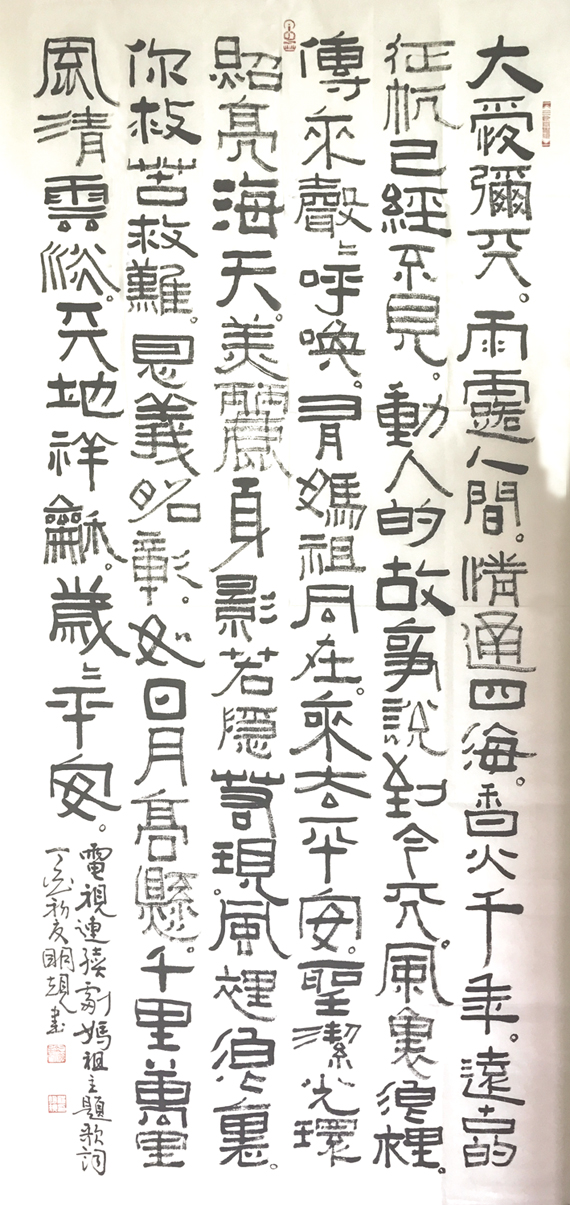 大愛彌天。雨露人間。情通四海。香火千年。遠古的
征帆已經不見。動人的故事說到今天。風裏浪裡。
傳來聲〻呼喚。有媽祖同在。來去平安。聖潔光環
照亮海天。美麗身影若隱若現。風裡浪裏。
你救苦救難。恩義昭彰。如日月高懸。千里萬里
風清雲淡。天地祥龢。歲〻平安。
電視連續劇媽祖主題歌詞
丁酉初夏明書